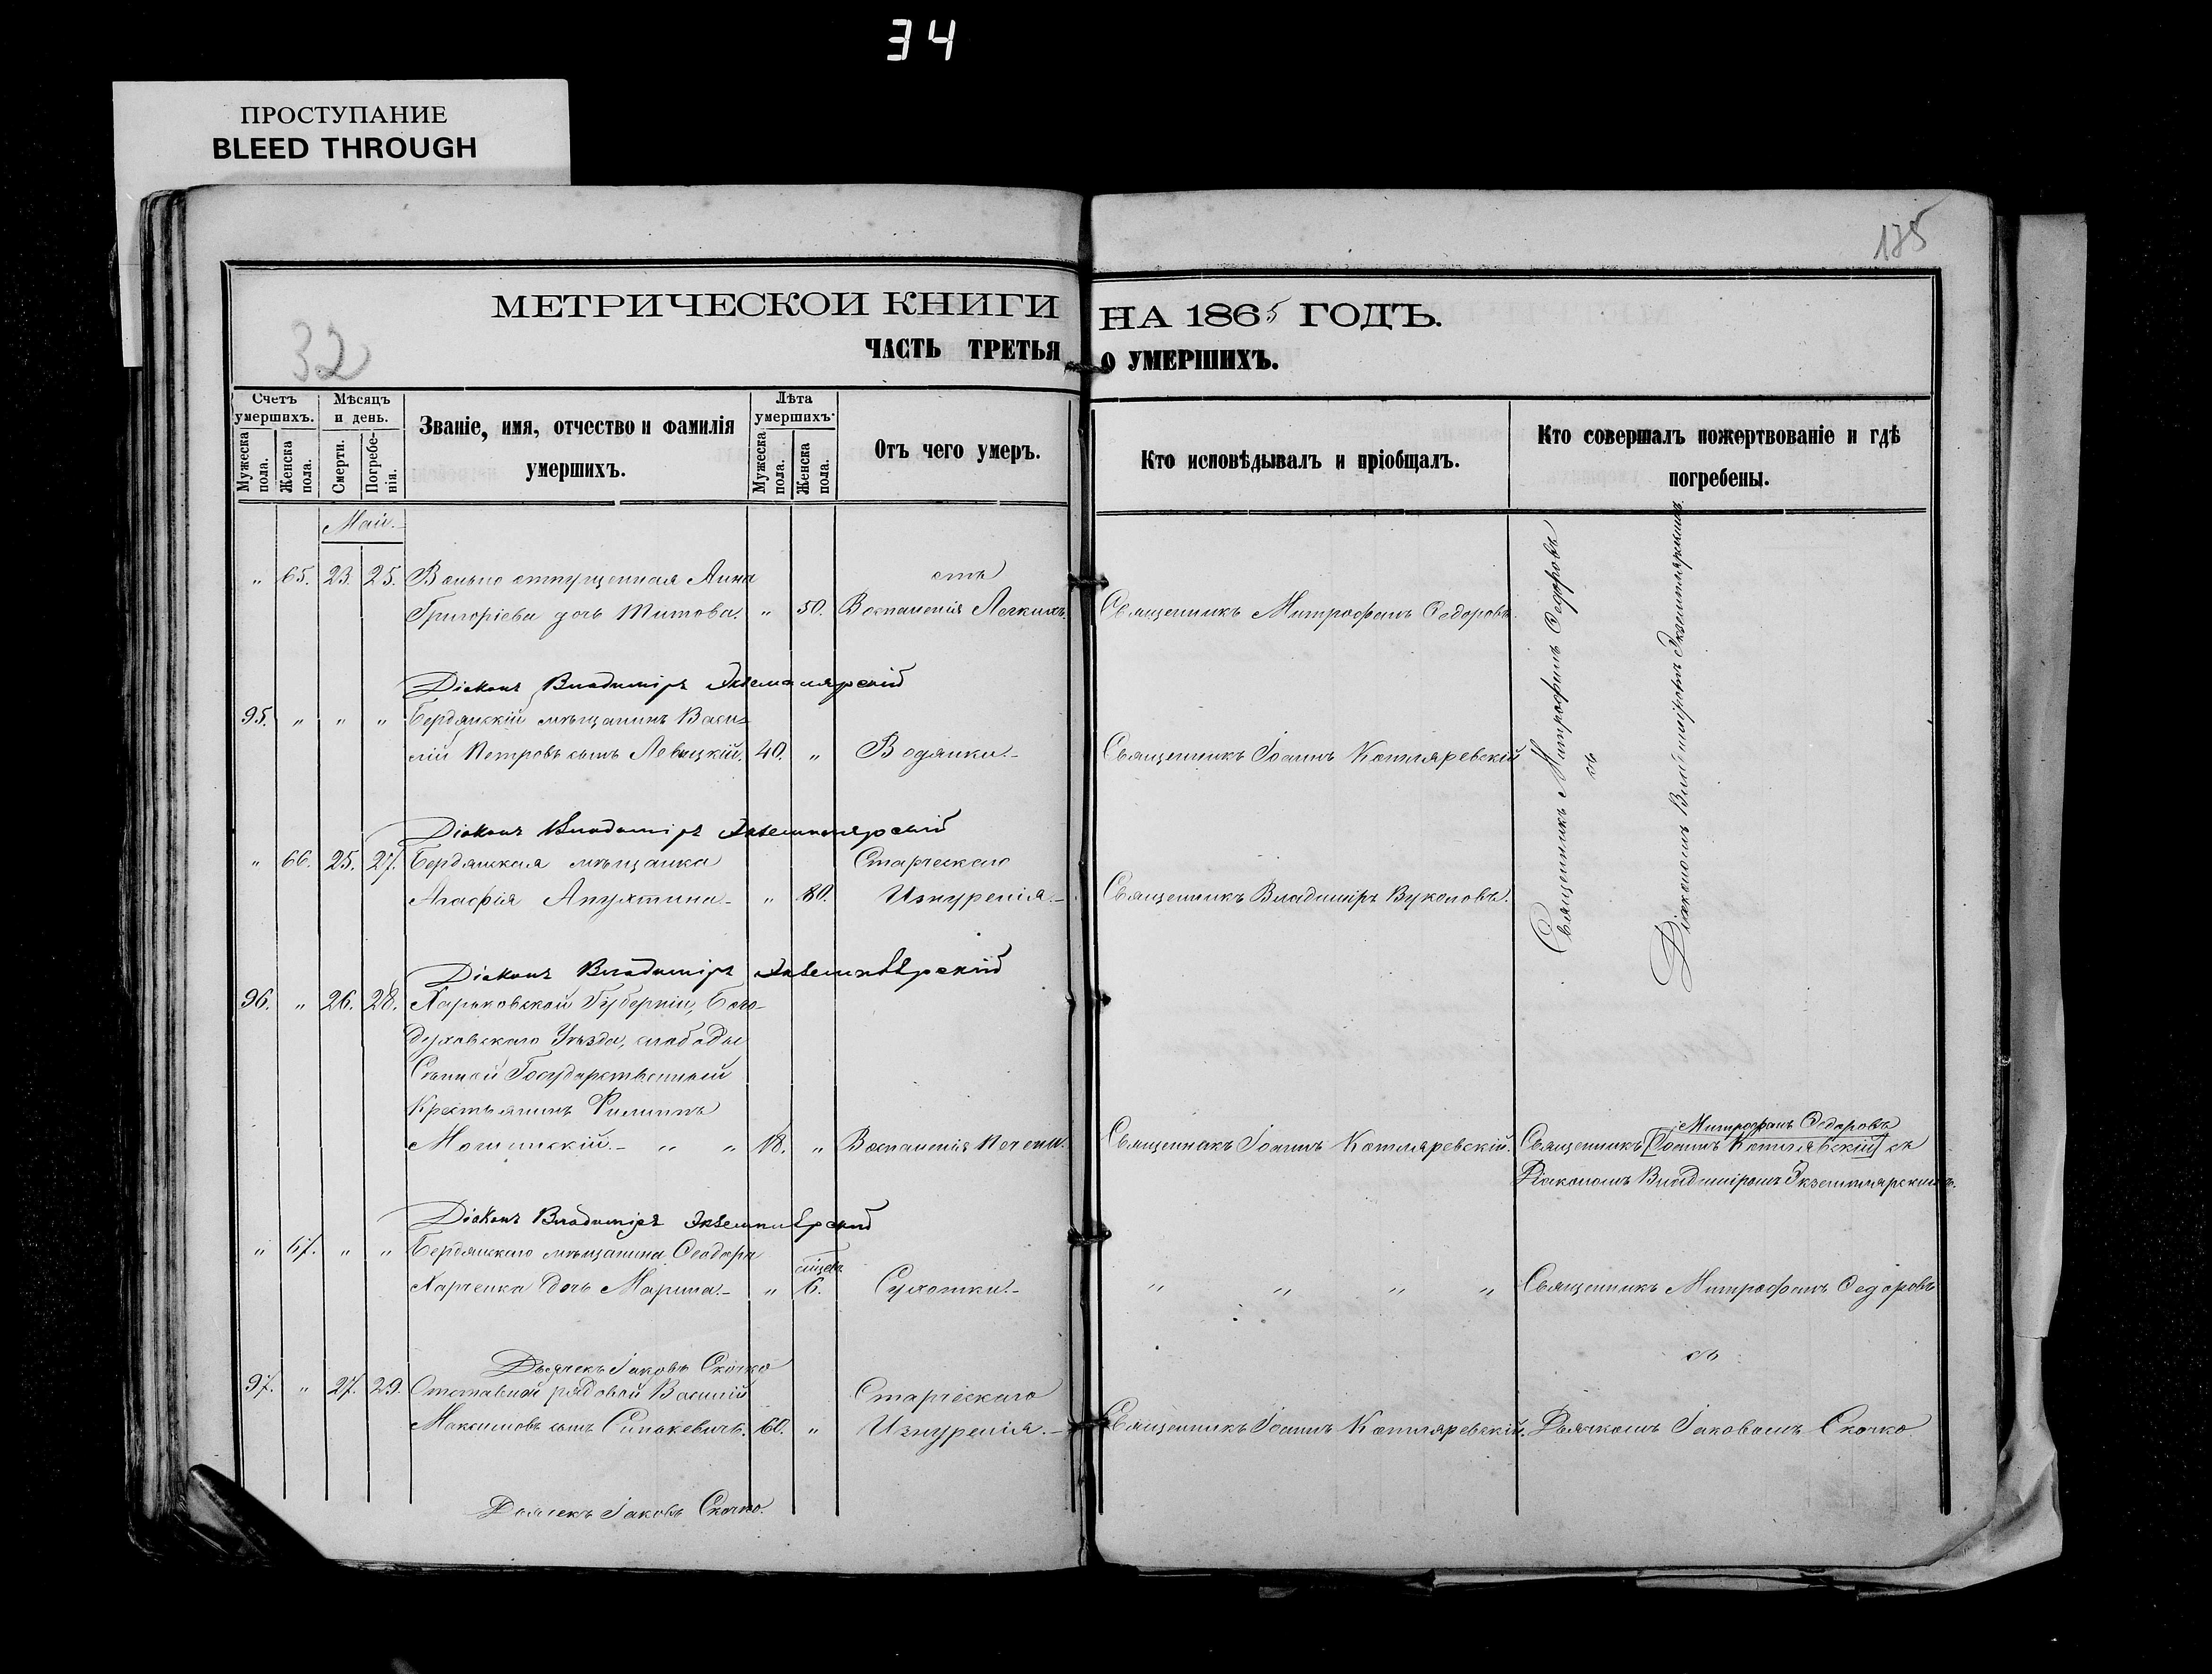 34
ПРОСТУПАНИЕ
BLEED THROUGH
175
32
МЕТРИЧЕСКОЙ КНИГИ НА 1865 ГОДЪ.
ЧАСТЬ ТРЕТЬЯ О УМЕРШИХЪ.
Счетъ умершихъ.
Мужеска пола.
Женска пола.
Мѣсяцъ и день.
Смерти.
Погребенія.
Званіе, имя, отчество и фамилія
умершихъ.
Лѣта умершихъ.
Мужеска пола.
Женска пола.
Отъ чего умеръ.
Кто исповѣдывалъ и пріобщалъ.
Кто совершалъ пожертвованіе и гдѣ
погребены.
Май.
" 65. 23. 25. Вольно отпущенная Анна отъ
Григоріева дочь Титова. " 50. Воспаленія Легкихъ. Священникъ Митрофанъ Федоровъ.
Священникъ Митрофанъ Федоровъ
съ
Діакономъ Владиміромъ Экземплярскимъ.
Діаконъ Владиміръ Экземплярскій
95. " " " Бердянскій мѣщанинъ Васи-
лій Петровъ сынъ Левицкій. 40. " Водянки. Священникъ Іоаннъ Котляревскій
Діаконъ Владиміръ Экземплярскій
" 66. 25. 27. Бердянская мѣщанка Старческаго
Агафія Апухтина " 80. Изнуренія. Священникъ Владиміръ Вуколовъ.
Діаконъ Владиміръ Экземплярскій
96. " 26. 28. Харьковской Губерніи, Бого-
духовскаго Уѣзда, слободы
Сѣнной Государственный
Крестьянинъ Филиппъ
Митрофанъ Федоровъ
" " 18. " Воспаленія Печени. Священникъ Іоаннъ Котляревскій. Священникъ [Іоаннъ Котляревскій] съ
Діакономъ Владиміромъ Экземплярскимъ.
Діаконъ Владиміръ Экземплярскій
" 67. " " Бердянскаго мѣщанина Феодора
Харченка дочь Марина. " 6. Сухотки. " " " " Священникъ Митрофанъ Федоровъ
съ
Дьячекъ Іаковъ Скочко
97. " 27. 29. Отставной рядовой Василій Старческаго
Максимовъ сынъ 60. " Изнуренія. Священникъ Іоаннъ Котляревскій. Дьячкомъ Іаковомъ Скочко
Дьячекъ Іаковъ Скочко.